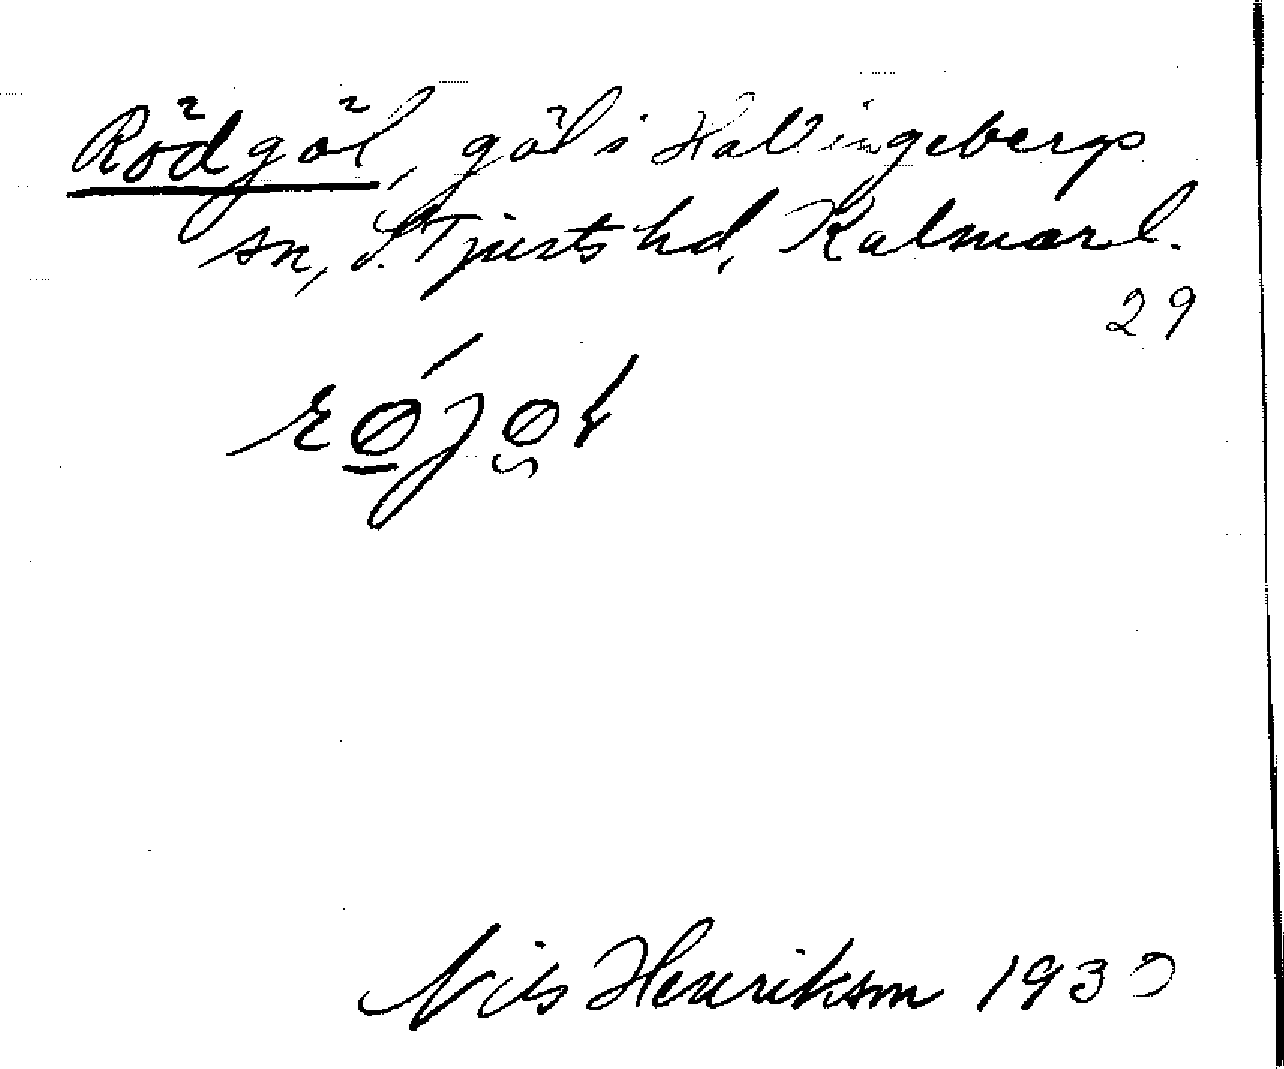 Rödgöl, göl i Hallingebergs
sn, S. Tjusts hd, Kalmar l.
29
Nils Henrikson 1930